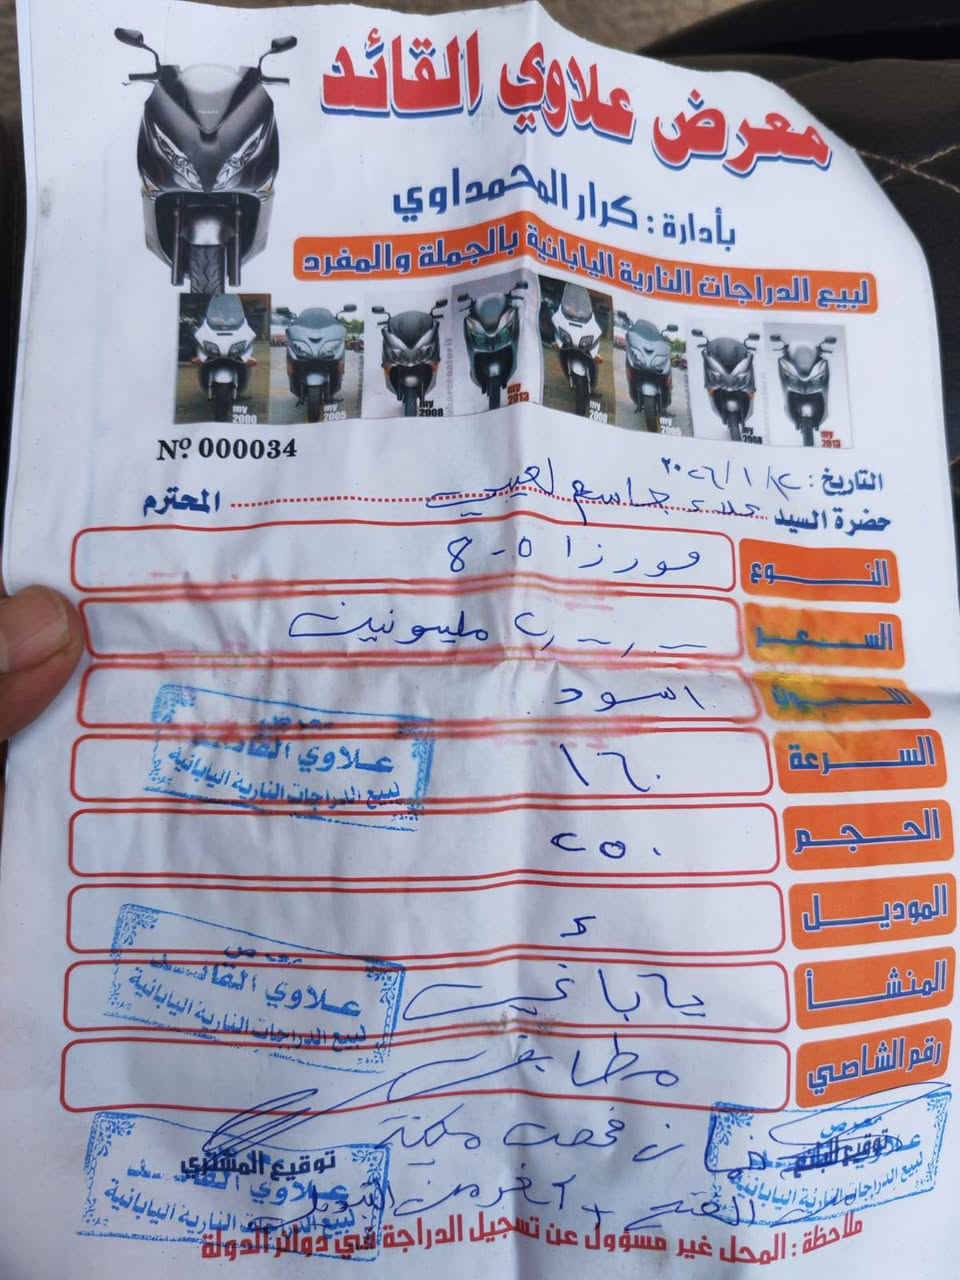 معرض علاوي القائد
بأدارة : كرار المحمداوي
لبيع الدراجات النارية اليابانية بالجملة والمفرد
my 2000
my 2005
my 2008
my 2013
my 2000
my 2005
my 2008
my 2013
№ 000034
التاريخ : ٢٠٢٦/١/
حضرة السيد علاء جاسم لعيبي المحترم
النوع فورزا ٥-8
السعر مليونين
اللون اسود
السرعة ١٦٠
الحجم ٢٥٠
الموديل ٤
المنشأ ياباني
رقم الشاصي مطابق
معرض
علاوي القائد
لبيع الدراجات النارية اليابانية
معرض
علاوي القائد
لبيع الدراجات النارية اليابانية
فحص مكينة
توقيع المشتري
توقيع البائع
علاوي القائد
لبيع الدراجات النارية اليابانية
معرض
لبيع الدراجات النارية اليابانية
ملاحظة : المحل غير مسؤول عن تسجيل الدراجة في دوائر الدولة